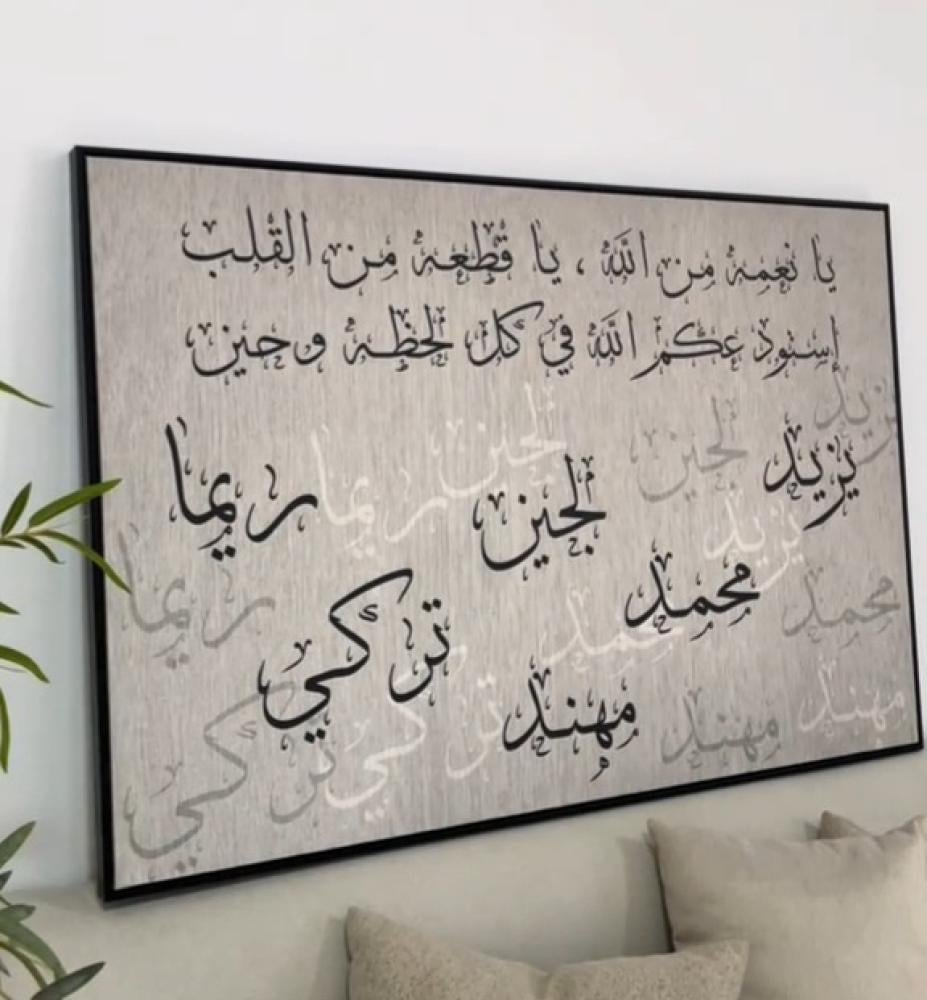 يا نعمة من الله ، يا قطعة من القلب
إستودعكم الله في كل لحظة وحين
يزيد
لجين
يزيد
لجين
لجين
ريما
ريما
يزيد
محمد
محمد
ريما
محمد
تركي
مهند
مهند
مهند
تركي
تركي